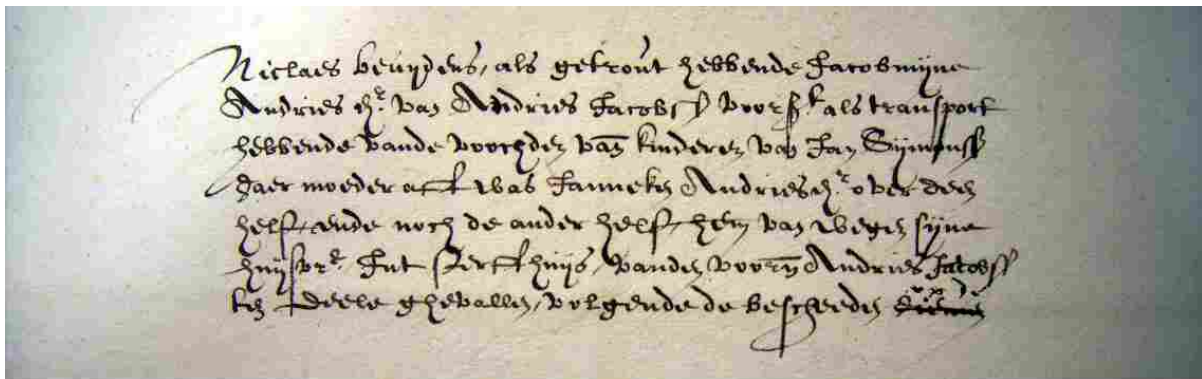 Niclaes beuijdens, als getrout hebbende Jacobmijne
Andries dr van Andries Jacobss voors. als transport
hebbende vande voochden van kinderen van Jan Sijmonss
daer moeder aff was Janneken Andries dr over deen
helft, ende noch de ander helft hem van wegen sijne
huijsvr. Int sterffhuijs, vanden voorn. Andries Jacobss
ten deele ghevallen, volgende de bescheeden